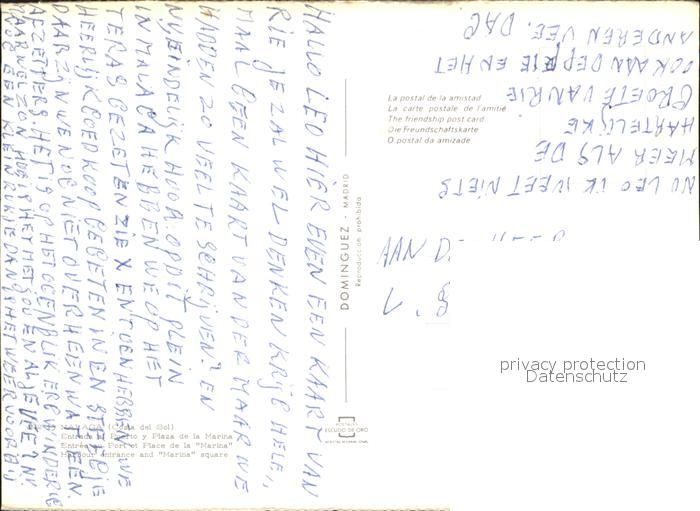 HALLO LEO HIER EVEN EEN KAART VAN
RIE JE ZAL WEL DENKEN KRIJG HELE,,
MAAL GEEN KAART VAN DER MAAR WE
HADDEN ZO VEEL TE SCHRIJVEN? EN
NU EINDELIJK HOOR. OP DIT PLEIN
IN MALAGA HEBBEN WE OP HET
TERAS GEZETEN ZIE X EN TOEN HEBBEN WE
HEERLIJK GOEDKOOP GEGETEN IN EN
DAAR ZIJN WE NOG NIET OVERHEEN WAT EEN
AFZETTERS HET IS OP HET OGENBLIK ERG WINDERIG
MAAR WEL ZON HOE IS HET MET JOU EN AL JE
NOG EEN KLEIN RUKJE DAN IS HET WEER VOORBIJ
NU LEO IK WEET NIETS
MEER ALS DE
HARTELIJKE
GROETE VAN RIE
OOK AAN DEPPIE EN HET
ANDEREN VEE. DAG
La postal de la amistad
La carte postale de l'amitié
The friendship post card
Die Freundschaftskarte
O postal da amizade
DOMINGUEZ - MADRID
Reproducción prohibida
AAN D.
POSTALES
ESCUDO DE ORO
MALAGA (Costa del Sol)
Entrada al Puerto y Plaza de la Marina
Entrée au Port et Place de la "Marina"
Harbour entrance and "Marina" square
privacy protection
Datenschutz